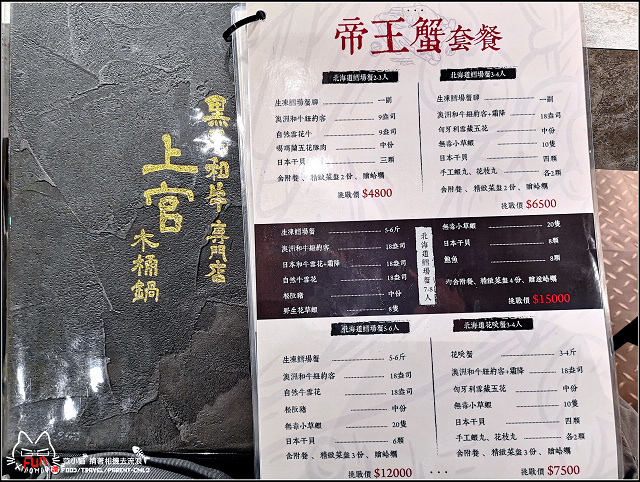 黑
和牛專門店
上官
木桶鍋
帝王蟹套餐
北海道鱈場蟹2-3人
生凍鱈場蟹腳 一副
澳洲和牛紐約客 9盎司
自然雪花牛 9盎司
噶瑪蘭五花豚肉 中份
日本干貝 三顆
含附餐、精緻菜盤2份、贈蛤蠣
挑戰價 $4800
北海道鱈場蟹3-4人
生凍鱈場蟹腳 一副
澳洲和牛紐約客+霜降 18盎司
匈牙利雪藏五花 中份
無毒小草蝦 10隻
日本干貝 四顆
手工蝦丸、花枝丸 各2顆
含附餐、精緻菜盤2份、贈蛤蠣
挑戰價 $6500
北海道鱈場蟹7-8人
生凍鱈場蟹 5-6斤
澳洲和牛紐約客 18盎司
日本和牛雪花+霜降 18盎司
自然牛雪花 18盎司
松阪豬 中份
野生花草蝦 8隻
無毒小草蝦 20隻
日本干貝 8顆
鮑魚 8顆
內含附餐、精緻菜盤4份、贈送蛤蠣
挑戰價 $15000
北海道鱈場蟹5-6人
生凍鱈場蟹 5-6斤
澳洲和牛紐約客 18盎司
自然牛雪花 18盎司
松阪豬 中份
無毒小草蝦 20隻
日本干貝 6顆
含附餐、精緻菜盤3份、贈蛤蠣
挑戰價 $12000
北海道花咲蟹3-4人
花咲蟹 3-4斤
澳洲和牛紐約客+霜降 18盎司
匈牙利雪藏五花 中份
無毒小草蝦 10隻
日本干貝 四顆
手工蝦丸、花枝丸 各2顆
含附餐、精緻菜盤3份、贈蛤蠣
挑戰價 $7500
FUN
揹著相機去流浪
FOOD/TRAVEL/PARENT-CHILD